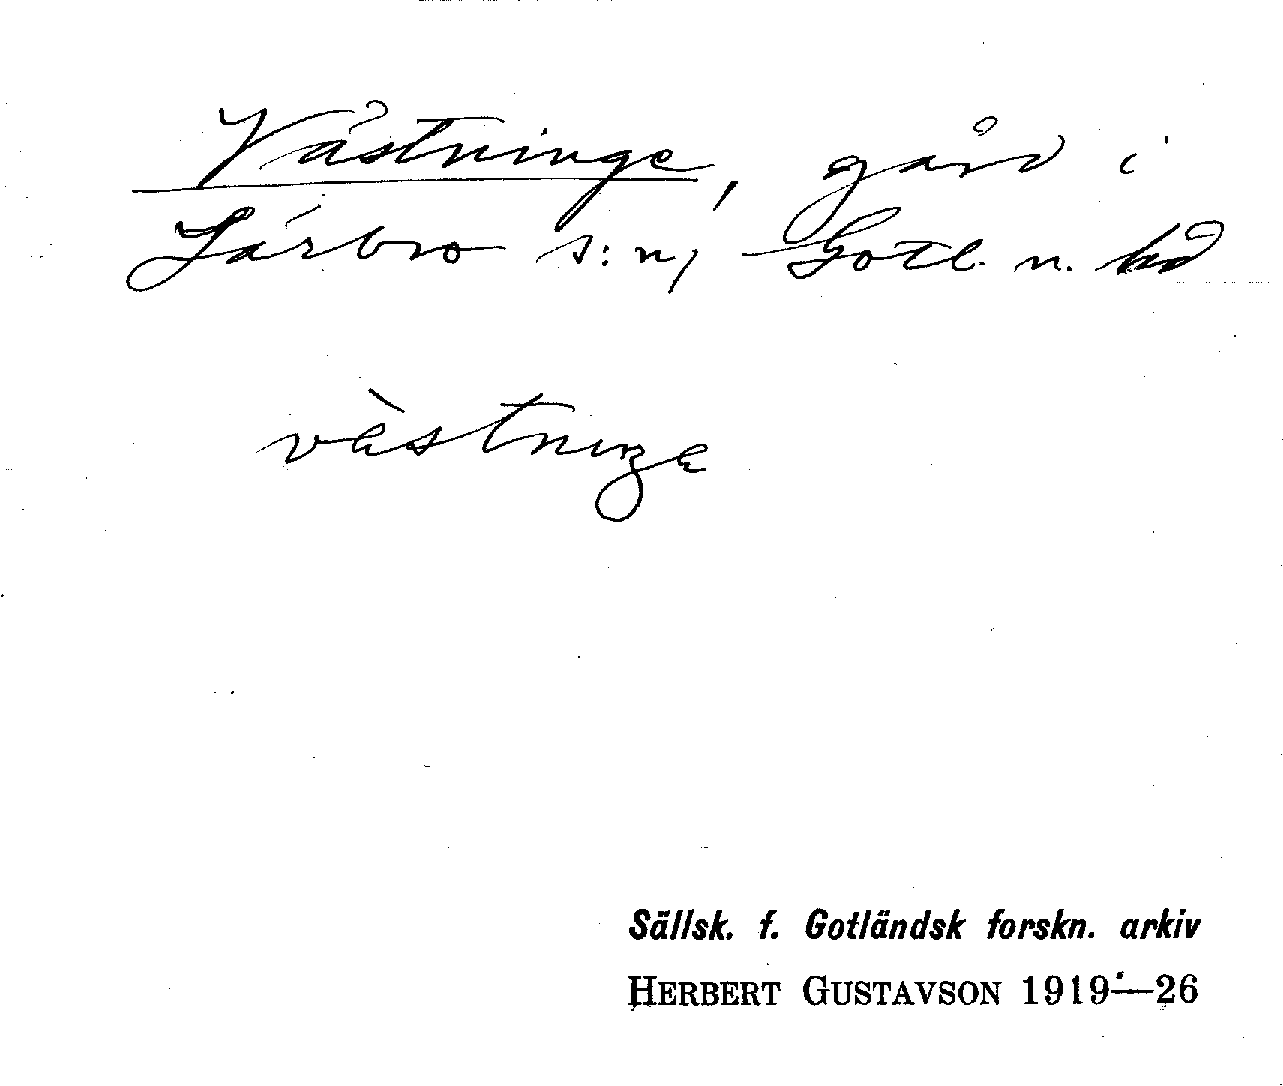 Västninge, gård i
Lärbro s:n, Gotl. n. hd
vèstnıŋe
Sällsk. f. Gotländsk forskn. arkiv
HERBERT GUSTAVSON 1919—26